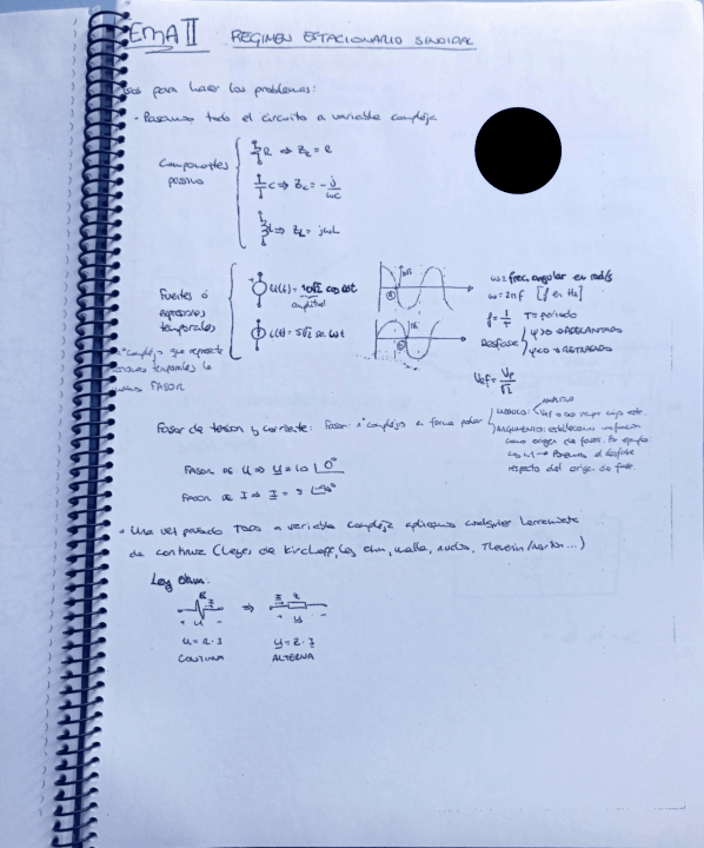 EMA II REGIMEN ESTACIONARIO SINOIDAL
sos para hacer los problemas:
· Pasamos todo el circuito a variable compleja
Componentes
pasivos
R ⇒ Z_R = R
C ⇒ Z_C = -j/ωC
⇒ Z_L = jωL
Fuentes ó
expresiones
temporales
u(t) = 10√2 cos ωt
amplitud
i(t) = 5√2 sen ωt
ω = frec. angular en rad/s
ω = 2πf [f en Hz]
f = 1/T T = periodo
Desfase φ>0 → ADELANTADO
φ<0 → RETRASADO
Vef = Vp/√2
nº complejo que represente
temporales lo
FASOR
Fasor de tension y corriente: Fasor: nº complejo en forma polar
MODULO: Vef
ARGUMENTO: establecemos una función
como origen de fases. Por ejemplo
cos ωt → Ponemos el desfase
respecto del origen de fase.
FASOR DE U ⇒ U = 10 |0°
FASOR DE I ⇒ I = 5 |-90°
· Una vez pasado TODO a variable compleja aplicamos cualquier herramienta
de continua (Leyes de Kirchoff, Ley ohm, malla, nudos, Thevenin/Norton...)
Ley Ohm:
R I ⇒ I Z
+ U - + U -
U = R · I U = Z · I
CONTINUA ALTERNA